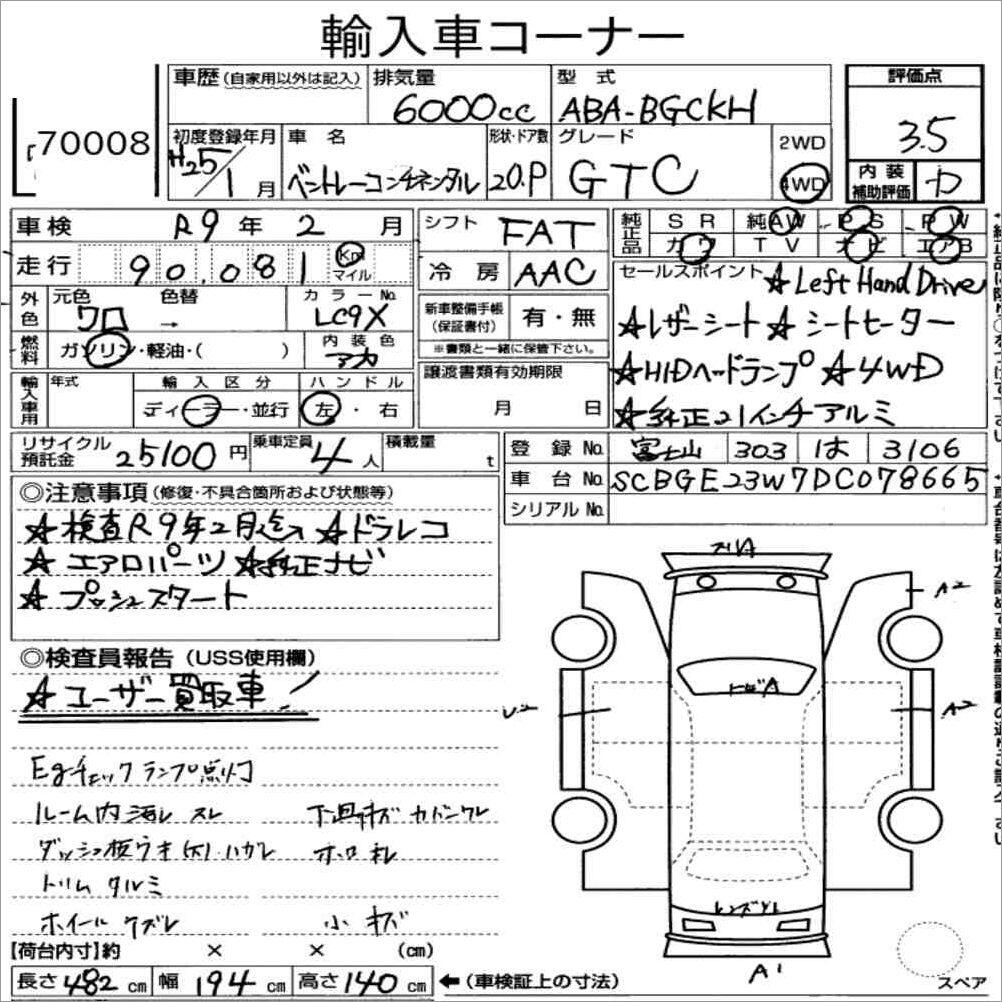 輸入車コーナー
70008
車歴(自家用以外は記入)
排気量
6000cc
型式
ABA-BGCKH
評価点
3.5
初度登録年月
H25/1月
車名
ベントレーコンチネンタル
形状・ドア数
2D.P
グレード
GTC
2WD
4WD
内装
補助評価
車検
R9年2月
シフト
FAT
純正品
SR 純AW PS PW
カワ TV ナビ エアB
走行
90.081
Km
マイル
冷房
AAC
セールスポイント
★Left Hand Drive
★レザーシート★シートヒーター
★HIDヘッドランプ ★4WD
★純正21インチアルミ
外色
元色
クロ
色替
→
カラーNo.
LC9X
新車整備手帳
(保証書付)
有・無
※書類と一緒に保管下さい。
燃料
ガソリン・軽油・( )
内装色
アカ
輸入車用
年式
輸入区分
ディーラー・並行
ハンドル
左・右
譲渡書類有効期限
月 日
リサイクル
預託金
25100円
乗車定員
4人
積載量
t
登録No.
富士山 303 は 3106
車台No.
SCBGE23W7DC078665
シリアルNo.
◎注意事項(修復・不具合箇所および状態等)
★検査R9年2月迄 ★ドラレコ
★エアロパーツ ★純正ナビ
★プッシュスタート
◎検査員報告(USS使用欄)
★ユーザー買取車!
Egチェックランプ点灯
ルーム内 汚レ スレ
下廻キズ
ダッシュ板ウキ(大)・ハガレ
ホロ 礼
トリム タルミ
ホイール ケズレ
小キズ
【荷台内寸】約 × × (cm)
長さ482cm 幅194cm 高さ140cm
←(車検証上の寸法)
A2
A2
U2
A1
スペア